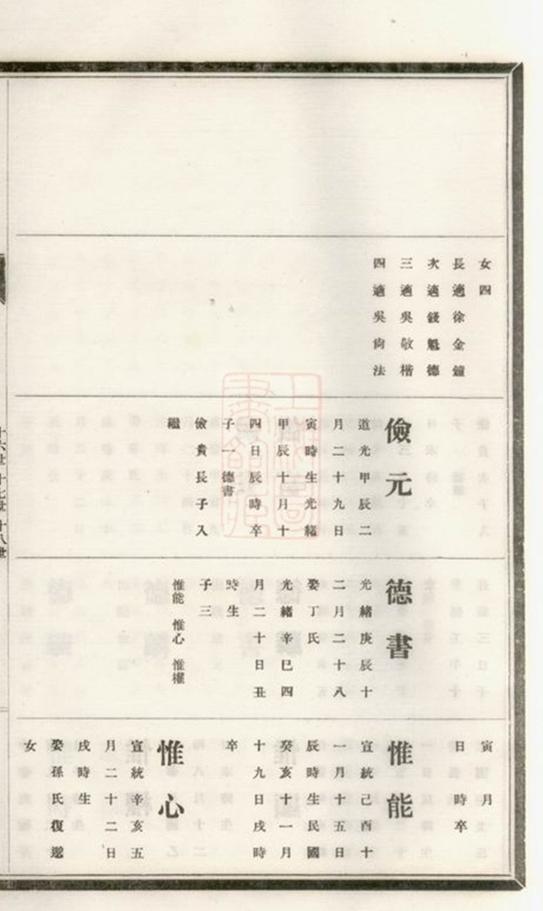 女四
長適徐金鐘
次適錢魁德
三適吳敬楷
四適吳尙法
儉元
道光甲辰二
月二十九日
寅時生光緒
甲辰十月十
四日辰時卒
子一 德書
儉貴長子入
繼
德書
光緒庚辰十
二月二十八
娶丁氏
光緒辛巳四
月二十日丑
時生
子三
惟能 惟心 惟權
寅 月
日 時卒
惟能
宣統己酉十
一月十五日
辰時生民國
癸亥十一月
十九日戌時
卒
惟心
宣統辛亥五
月二十二日
戌時生
娶孫氏復邈
女
十六世 十七世 十八世